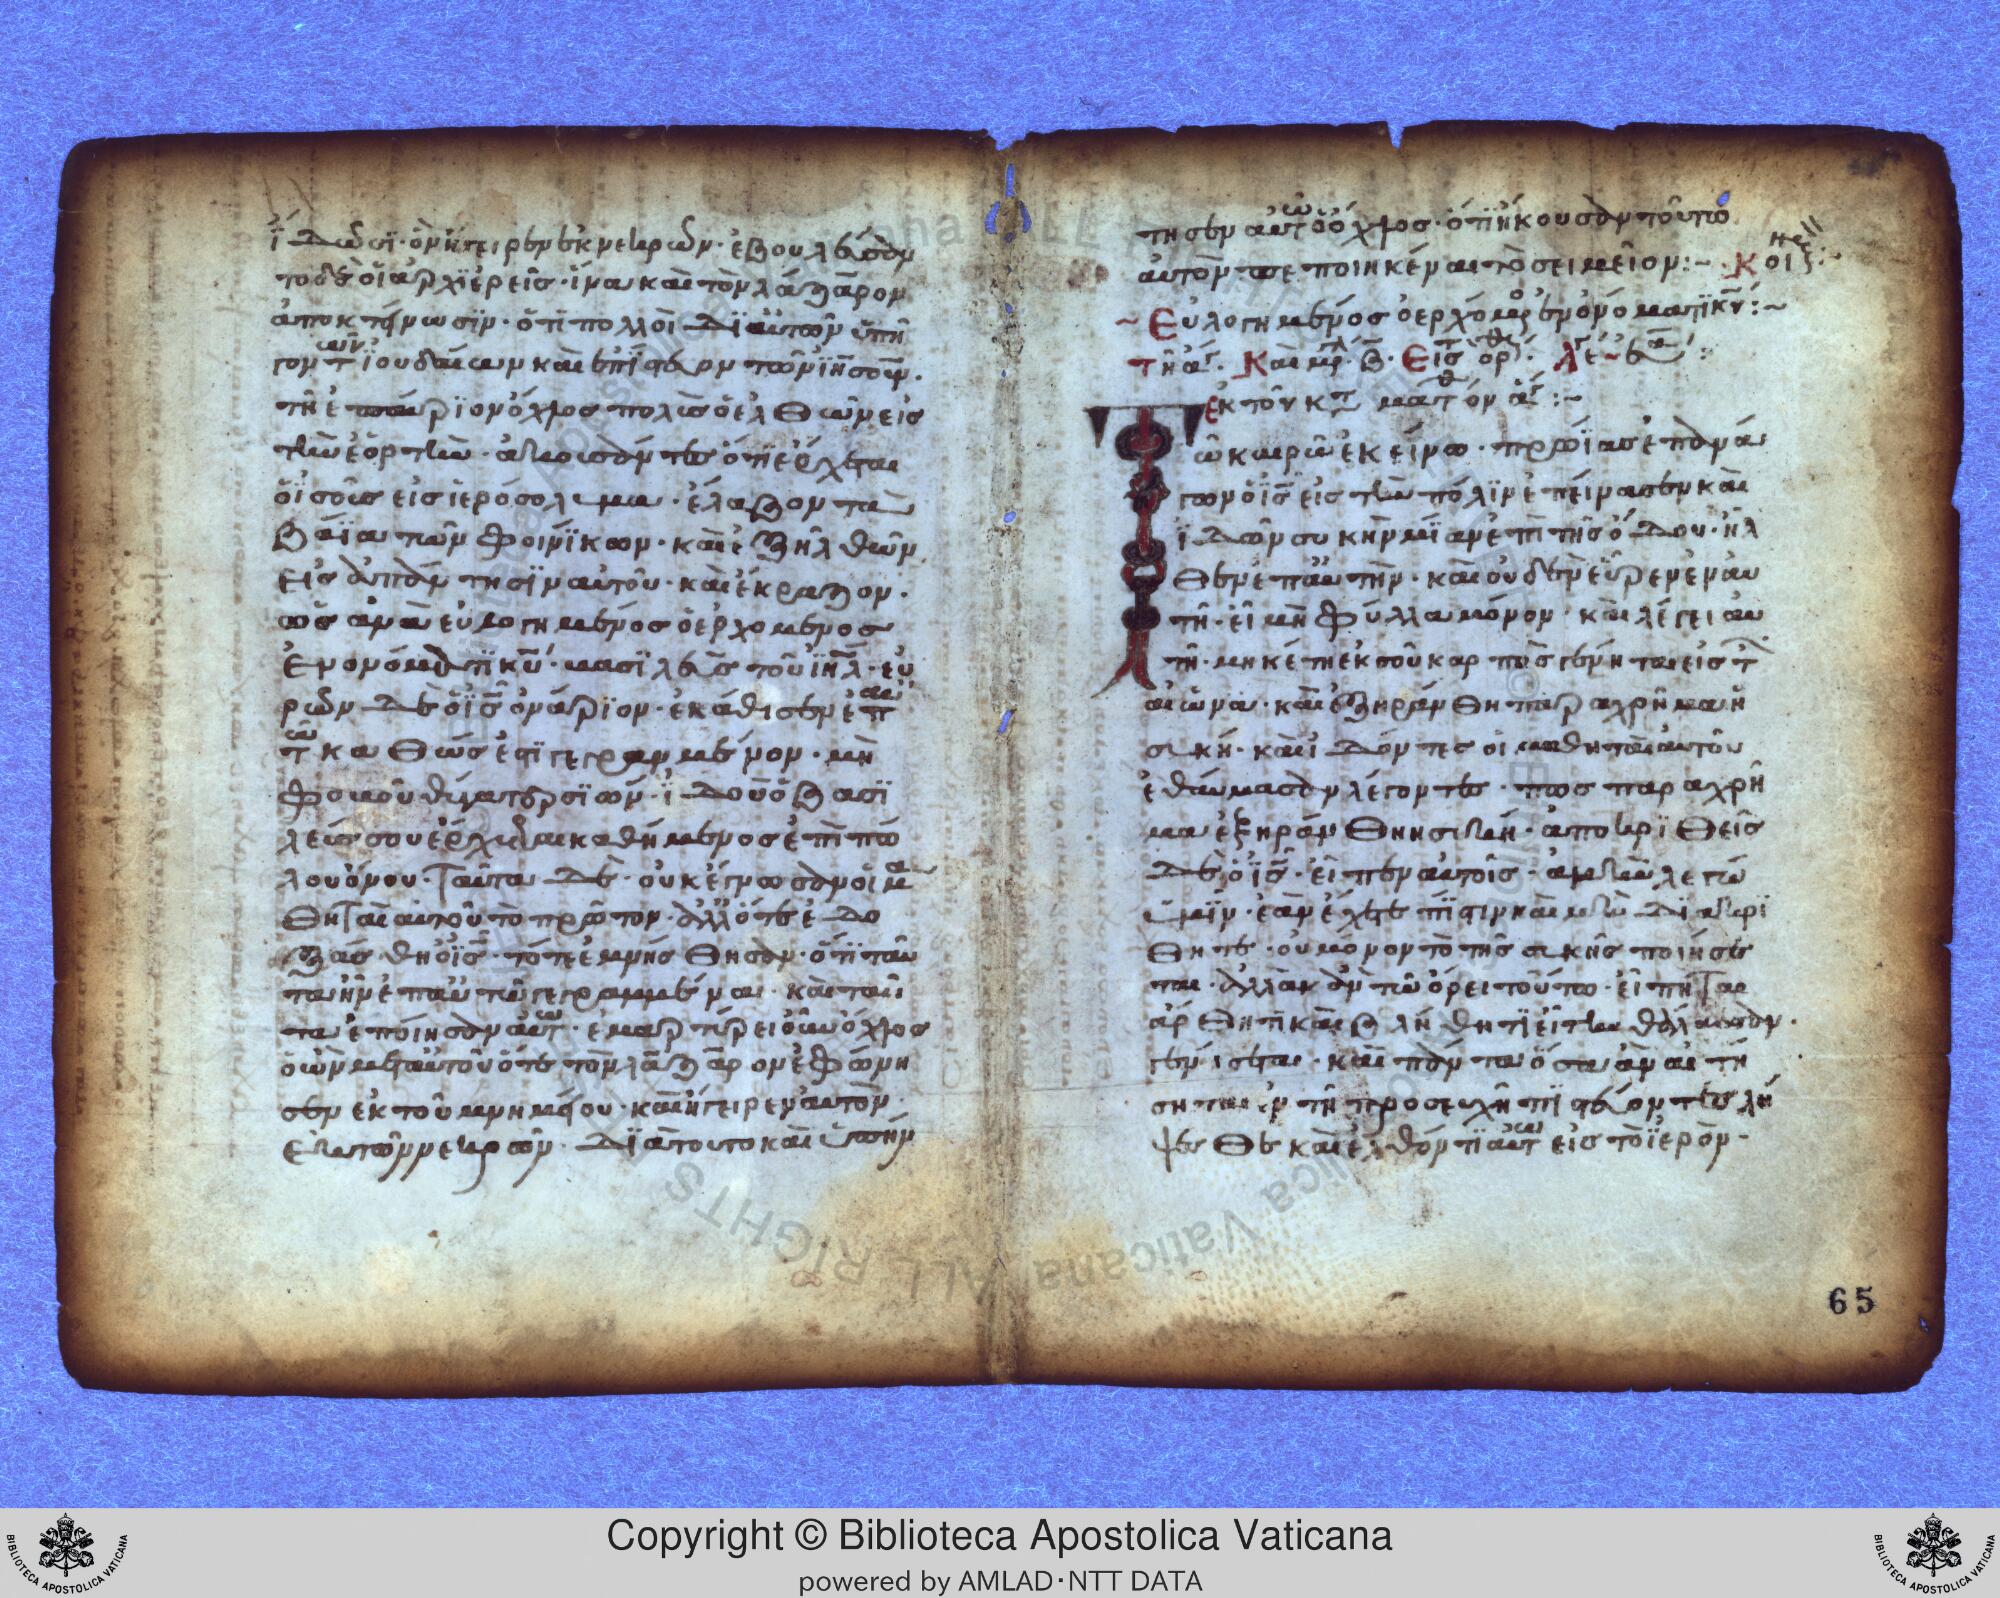 ἴδωσϊ· ὃν ἤγειρεν ἐκ νεκρῶν· ἐβουλεύσαν
το δὲ οἱ ἀρχϊερεῖς· ἵνα καὶ τὸν λάζαρον
ἀποκτήνωσϊν· ὅτϊ πολλοὶ δϊ αὐτὸν ὑπῆ
γον τῶν ϊουδαίων καὶ ἐπίστευον
τῆ ἐπαύριον ὄχλος πολὺς ὁ ἐλθὼν εἰς
τὴν ἑορτὴν· ἀκούσαντες ὅτϊ ἔρχεται
ὁ ἰς εἰς ἱερόσολυμα· ἔλαβον τὰ
βάϊα τῶν φοινίκων· καὶ ἐξῆλθων
εἰς ἀπάντησϊν αὐτοῦ· καὶ ἔκραζον·
ὡσαννὰ εὐλογημένος ὁ ἐρχόμενος
ἐν ὀνόματϊ κυ· βασϊλεὺς τοῦ ἰηλ· εὑ
ρὼν δὲ ὁ ἰς ὀνάριον· ἐκάθισεν ἐπ αὐ
τω καθώς ἐστϊ γεγραμμένον· μὴ
φοβοῦ θύγατερ σϊών· ἰδοῦ ὁ βασϊ
λεύς σου ἔρχεται καθήμενος ἐπὶ πώ
λου ὄνου· Ταῦτα δὲ οὐκ ἔγνωσαν οἱ μα
θηταὶ αὐτοῦ τὸ πρῶτον· ἀλλ ὅτε ἐδο
ξάσθη ὁ ἰς· τότε ἐμνήσθησαν· ὅτϊ ταῦ
τα ἦν ἐπ αὐτῶ γεγραμμένα· καὶ ταῦ
τα ἐποίησαν αὐτω· ἐμαρτύρει οὖν ὄχλος
ὁ ὢν μετ αὐτοῦ ὅτε τὸν λάζαρον ἐφώνη
σεν ἐκ τοῦ μνημείου· καὶ ἤγειρεν αὐτὸν
ἐκ τῶν νεκρῶν· δϊὰ τοῦτο καὶ ὑπήν
τησεν αὐτῶ ὁ ὄχλος· ὅτϊ ἤκουσαν τοῦτο
αὐτὸν πεποιηκέναι τὸ σειμεῖον:~ Κοι
~ Εὐλογημένος ὁ ἐρχόμενος ἐν ὀνόματι κυ:~
ἐκ τοῦ κτ ματθ
Τῶ καιρῶ ἐκείνω· πρωΐας ἐπανά
γων ὁ ις εἰς τὴν πόλϊν ἐπείνασεν καὶ
ἰδὼν συκὴν μίαν ἐπὶ τῆς ὁδοῦ· ἦλ
θεν ἐπ αὐτὴν· καὶ οὐδὲν εὗρεν ἐν αὐ
τῆ· εἰ μὴ φύλλα μόνον· καὶ λέγει αὐ
τῆ· μηκέτι ἐκ σοῦ καρπὸς γένηται εἰς τ
αἰῶνα· καὶ ἐξηράνθη παραχρῆμα ἡ
συκῆ· καὶ ἰδόντες οἱ μαθηταὶ αὐτοῦ
ἐθαύμασαν λέγοντες· πῶς παραχρῆ
μα ἐξηράνθη ἡ συκή· ἀποκρϊθεὶς
δὲ ὁ ἰς· εἶπεν αὐτοῖς· ἀμὴν λέγω
ὑμῖν· ἐὰν ἔχετε πίστιν καὶ μὴ δϊακρϊ
θῆτε· οὐ μόνον τὸ τῆς συκῆς ποιήσε
ται· ἀλλὰ κἂν τῶ ὄρει τούτω· εἴπηται
ἄρθητι καὶ βλήθητϊ εἰς τὴν θάλασσαν·
γενήσεται· καὶ πάντα ὅσα ἂν αἰτή
σηται ἐν τῆ προσευχῆ πϊστεύοντες λή
ψεσθε καὶ ἐλθόντϊ αὐτῶ εἰς τὸ ϊερὸν·
65
Copyright © Biblioteca Apostolica Vaticana
powered by AMLAD·NTT DATA
BIBLIOTECA APOSTOLICA VATICANA
BIBLIOTECA APOSTOLICA VATICANA